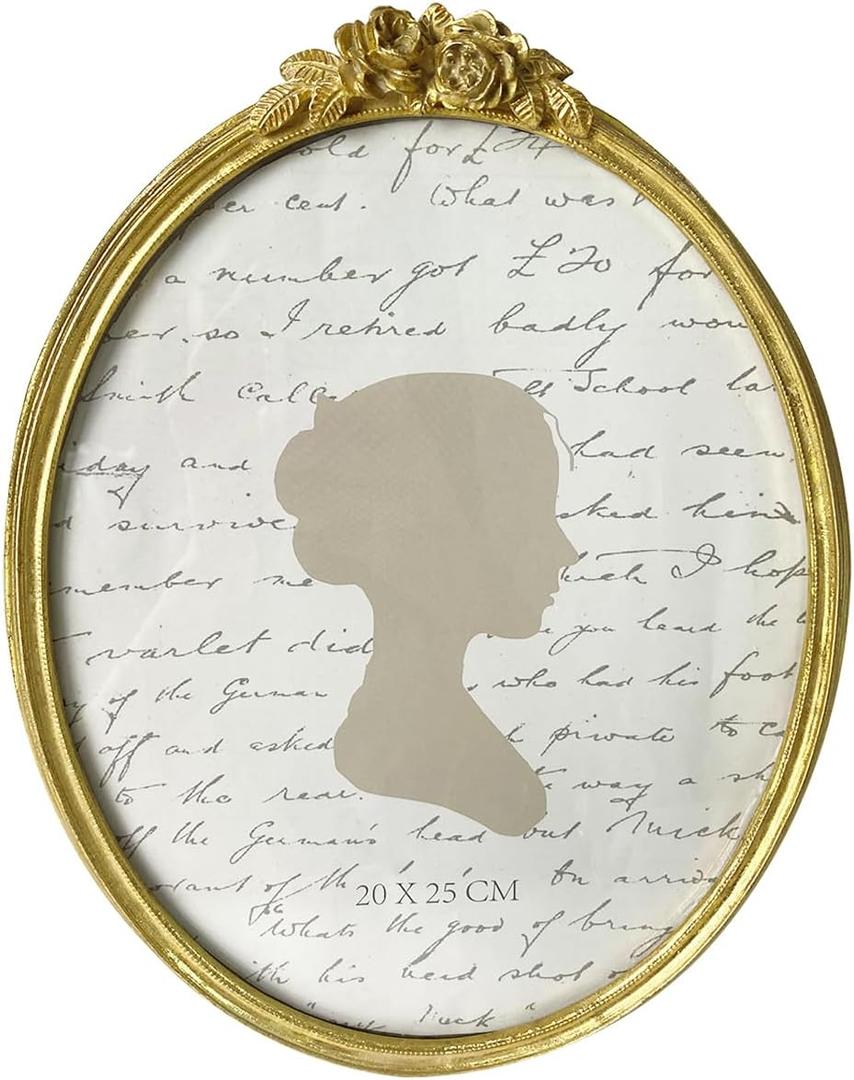 old for £
per cent. What was
a number got £ 20 for
so I retired badly wou
Smith Calle at School la
day and had seen
d survive sked him
member me hich I hop
varlet did you heard the
y of the German who had his foot
off and asked private to ca
to the rear. way a sh
off the German's head but Mick
of th On arriv
20 X 25 CM
Whats the good of bring
ith his head shot o